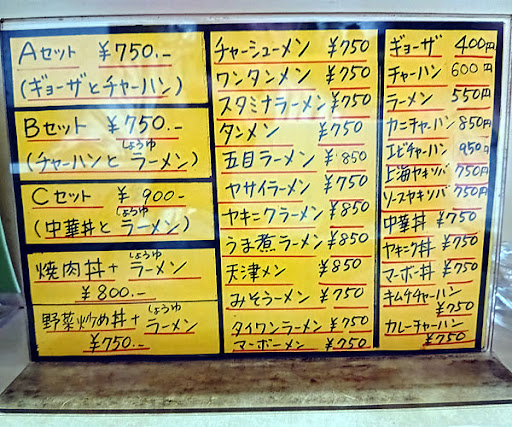 Aセット ¥750.-
(ギョーザとチャーハン)
Bセット ¥750.-
しょうゆ
(チャーハンとラーメン)
Cセット ¥900-
しょうゆ
(中華丼とラーメン)
しょうゆ
焼肉丼+ラーメン
¥800.-
しょうゆ
野菜炒め丼+ラーメン
¥750.-
チャーシューメン ¥750
ワンタンメン ¥750
スタミナラーメン ¥750
タンメン ¥750
五目ラーメン ¥850
ヤサイラーメン ¥750
ヤキニクラーメン ¥850
うま煮ラーメン ¥850
天津メン ¥850
みそラーメン ¥750
タイワンラーメン ¥750
マーボーメン ¥750
ギョーザ 400円
チャーハン 600円
ラーメン 550円
カニチャーハン 850円
エビチャーハン 950円
上海ヤキソバ 750円
ソースヤキソバ 750円
中華丼 ¥750
ヤキニク丼 ¥750
マーボ丼 ¥750
キムチチャーハン
¥750
カレーチャーハン
¥750